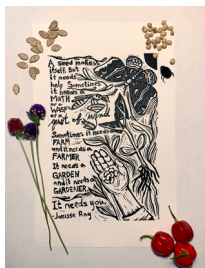 A seed makes
itself. But
it needs
help. Sometimes
it needs a
MOTH
or a
WASP
or a
gust of wind
Sometimes it needs a
FARM
and it needs a
FARMER
It needs a
GARDEN
and it needs a
GARDENER.
It needs you.
-Janisse Ray